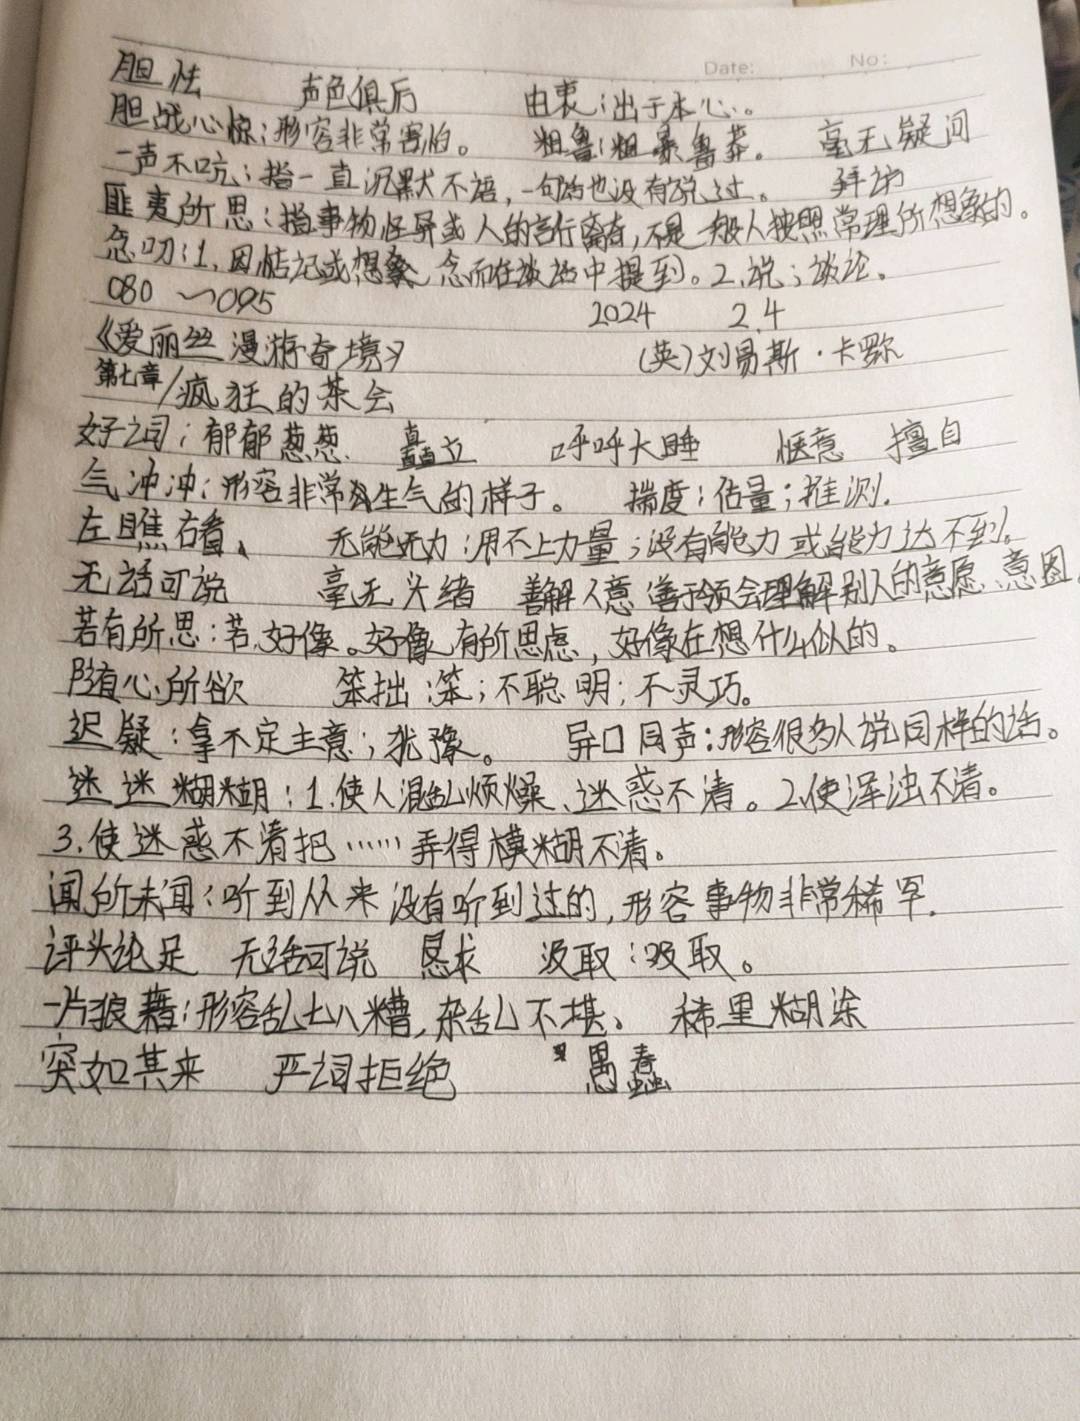 Date: No:
胆怯 声色俱厉 由衷:出于本心。
胆战心惊:形容非常害怕。 粗鲁:粗暴鲁莽。 毫无疑问
一声不吭:指一直沉默不语,一句话也没有说过。 拜访
匪夷所思:指事物怪异或人的言行离奇,不是一般人按照常理所想象的。
念叨:1.因惦记或想念而在谈话中提到。2.说;谈论。
080 ~095 2024 2.4
《爱丽丝漫游奇境》 (英)刘易斯·卡罗尔
第七章/疯狂的茶会
好词:郁郁葱葱 矗立 呼呼大睡 惬意 擅自
气冲冲:形容非常生气的样子。 揣度:估量;推测.
左瞧右看、 无能无力:用不上力量;没有能力或能力达不到。
无话可说 毫无头绪 善解人意:善于领会理解别人的意愿、意图
若有所思:若,好像。好像有所思虑,好像在想什么似的。
随心所欲 笨拙:笨;不聪明;不灵巧。
迟疑:拿不定主意;犹豫。 异口同声:形容很多人说同样的话。
迷迷糊糊:1.使人混乱烦燥、迷惑不清。2.使浑浊不清。
3.使迷惑不清把……弄得模糊不清。
闻所未闻:听到从来没有听到过的,形容事物非常稀罕.
评头论足 无话可说 恳求 汲取:吸取。
一片狼藉:形容乱七八糟,杂乱不堪、 稀里糊涂
突如其来 严词拒绝 愚蠢